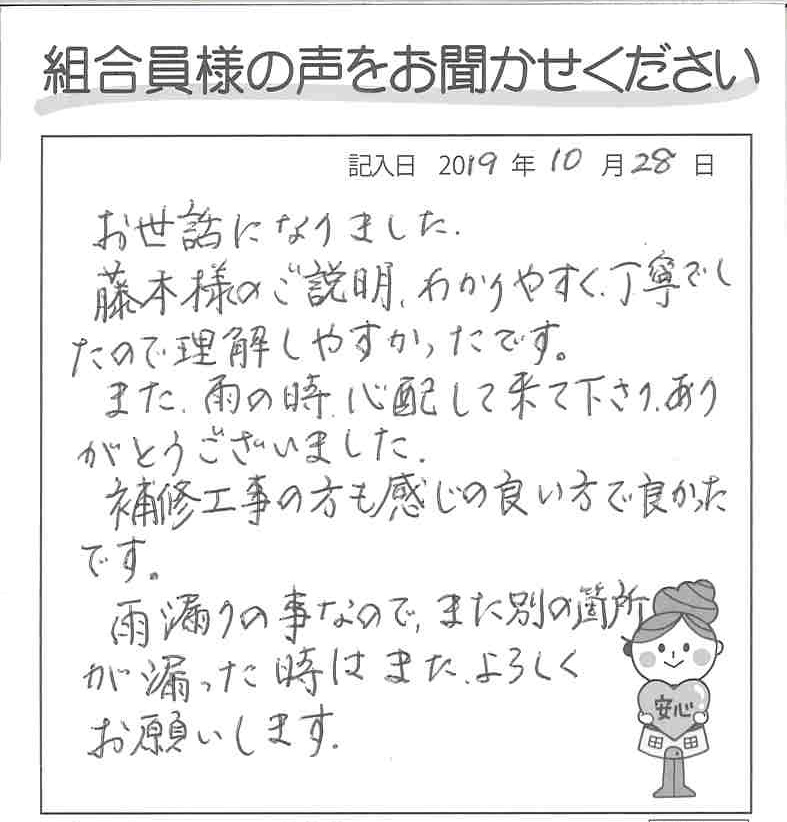 組合員様の声をお聞かせください
記入日 2019 年 10 月 28 日
お世話になりました.
藤本様のご説明、わかりやすく、丁寧でし
たので理解しやすかったです。
また、雨の時、心配して来て下さり、あり
がとうございました.
補修工事の方も感じの良い方で良かった
です。
雨漏りの事なので、また別の箇所
が漏った時はまた、よろしく
お願いします.
安心